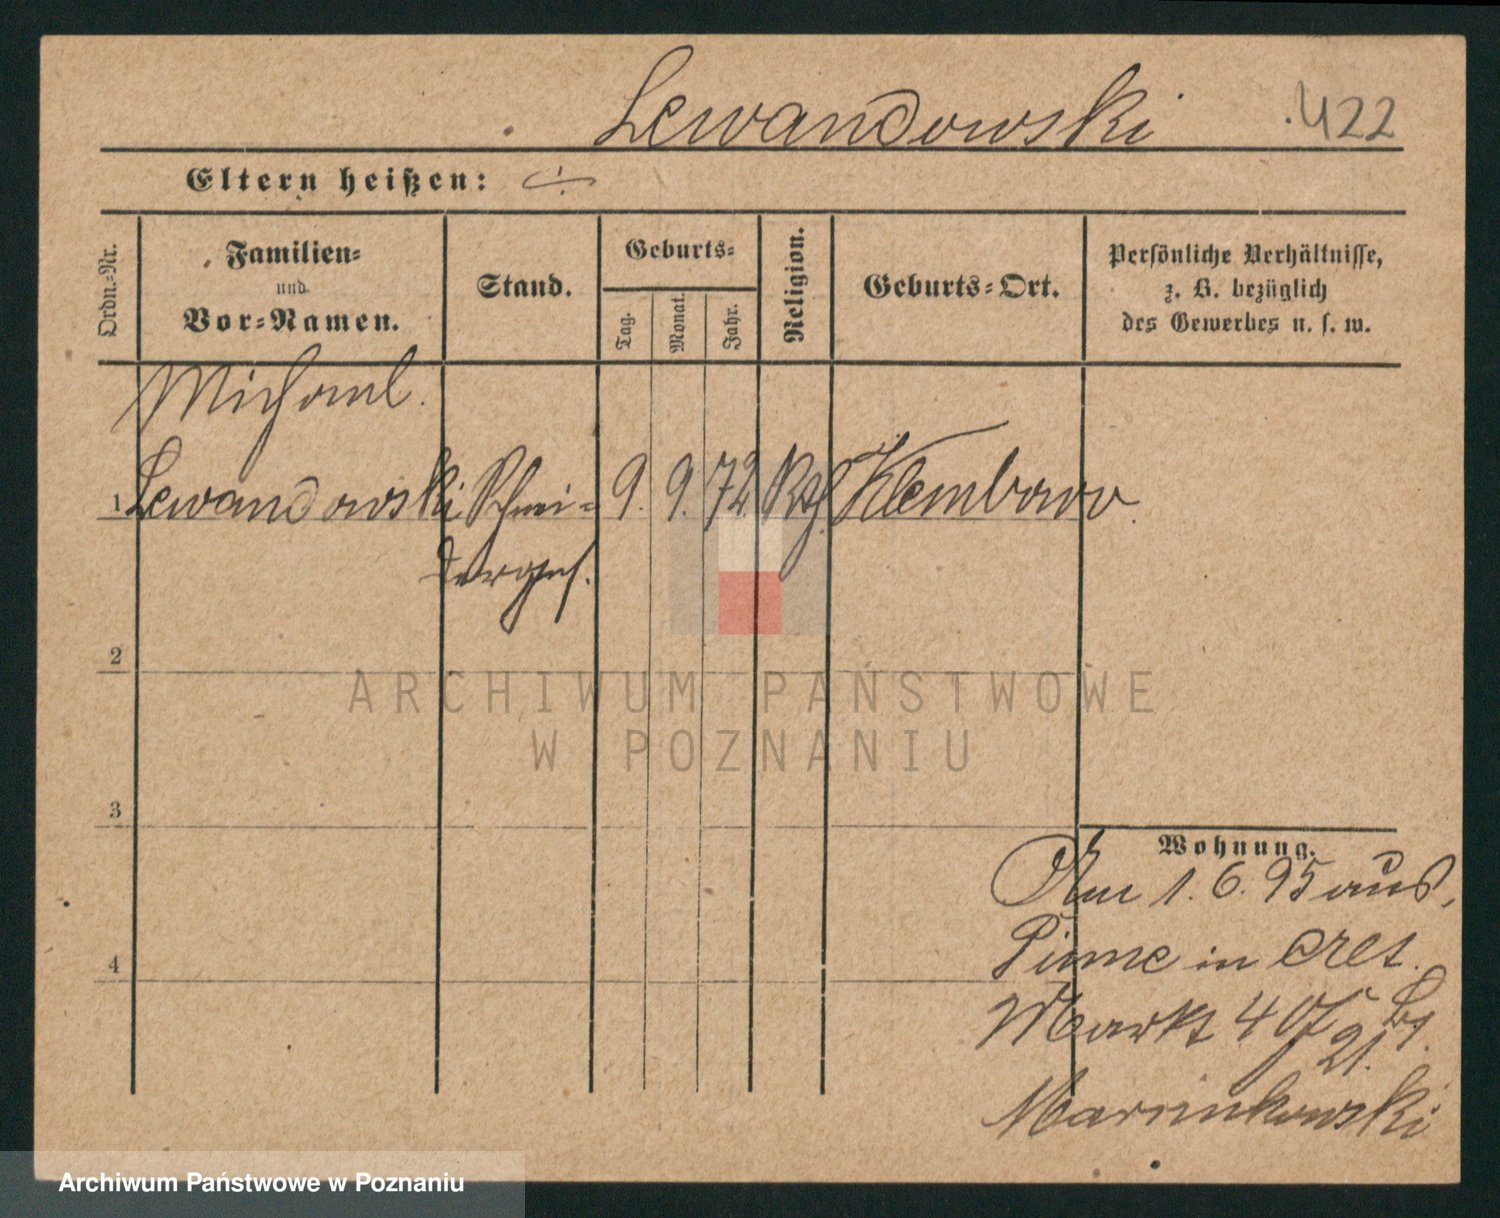 Lewandowski
422
Eltern heißen:
Ordn.-Nr.
Familien-
und
Vor-Namen.
Stand.
Geburts-
Tag.
Monat.
Jahr.
Religion.
Geburts-Ort.
Persönliche Verhältnisse,
z. B. bezüglich
des Gewerbes u. s. w.
Michael
1 Lewandowski Schnei- 9. 9. 72 Kth Klembowo
derges.
2
ARCHIWUM PAŃSTWOWE
W POZNANIU
3
Wohnung.
Am 1. 6. 95 aus
Pinne in
4
Markt 40
21.
Archiwum Państwowe w Poznaniu